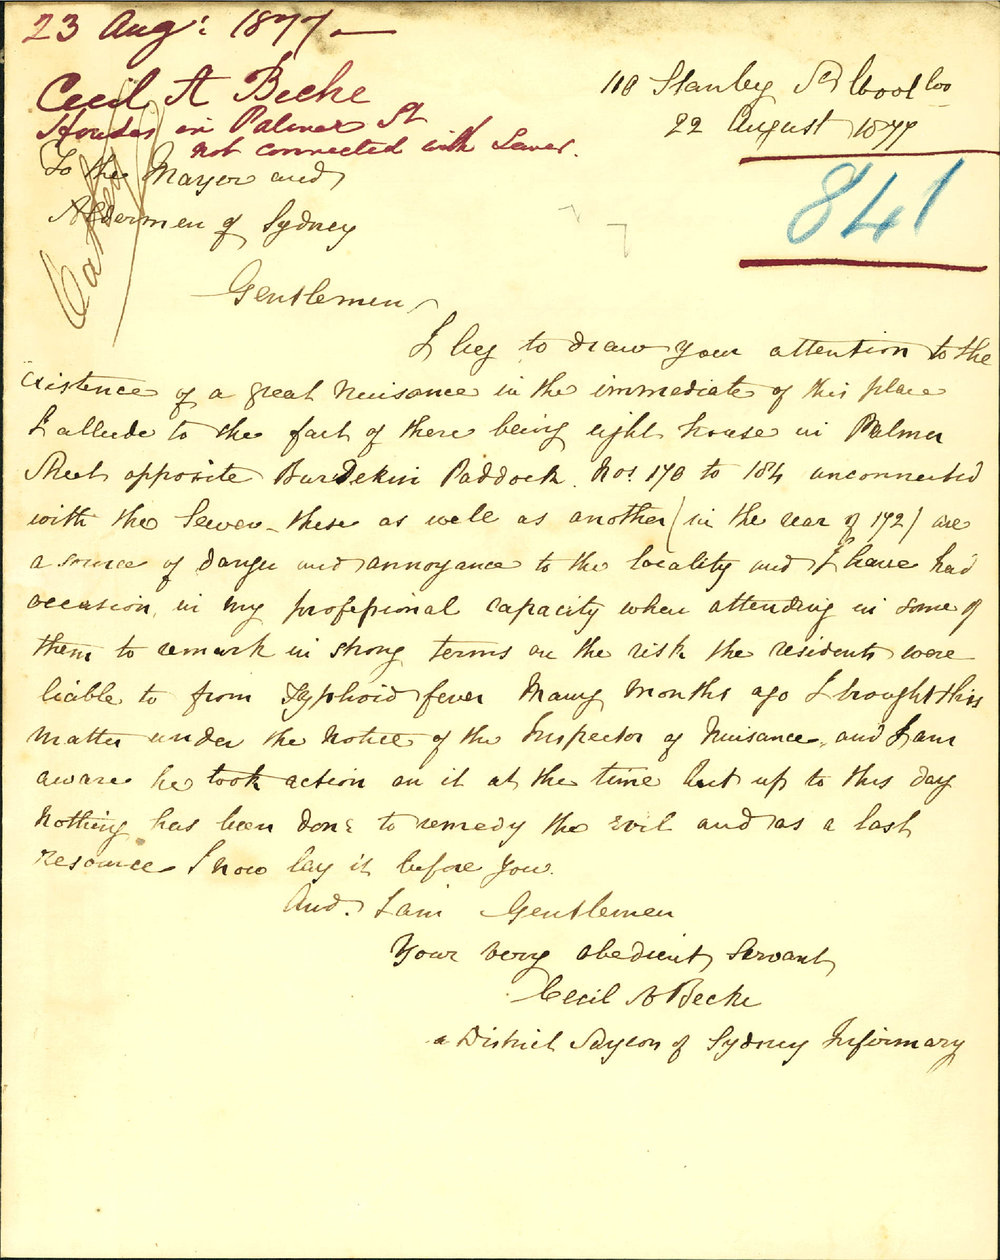 23 Augt: 1877.—
Cecil A Beche
Houses in Palmer St
not connected with Sewer.
110 Stanley St Wool loo
22 August 1877
841
To the Mayor and
Aldermen of Sydney
Gentlemen
I beg to draw your attention to the
existence of a great Nuisance in the immediate of this place
I allude to the fact of there being eight house in Palmer
Street opposite Burdekin Paddock. Nos. 170 to 184 unconnected
with the Sewer - these as well as another (in the rear of 172) are
a source of danger and annoyance to the locality and I have had
occasion, in my professional capacity when attending in some of
them to remark in strong terms on the risk the residents were
liable to from Typhoid fever Many months ago I brought this
matter under the notice of the Inspector of Nuisance, and I am
aware he took action on it at the time but up to this day
nothing has been done to remedy the evil and as a last
resource I now lay it before you.
And. I am Gentlemen
Your very obedient Servant
Cecil A Beche
a District Surgeon of Sydney Infirmary